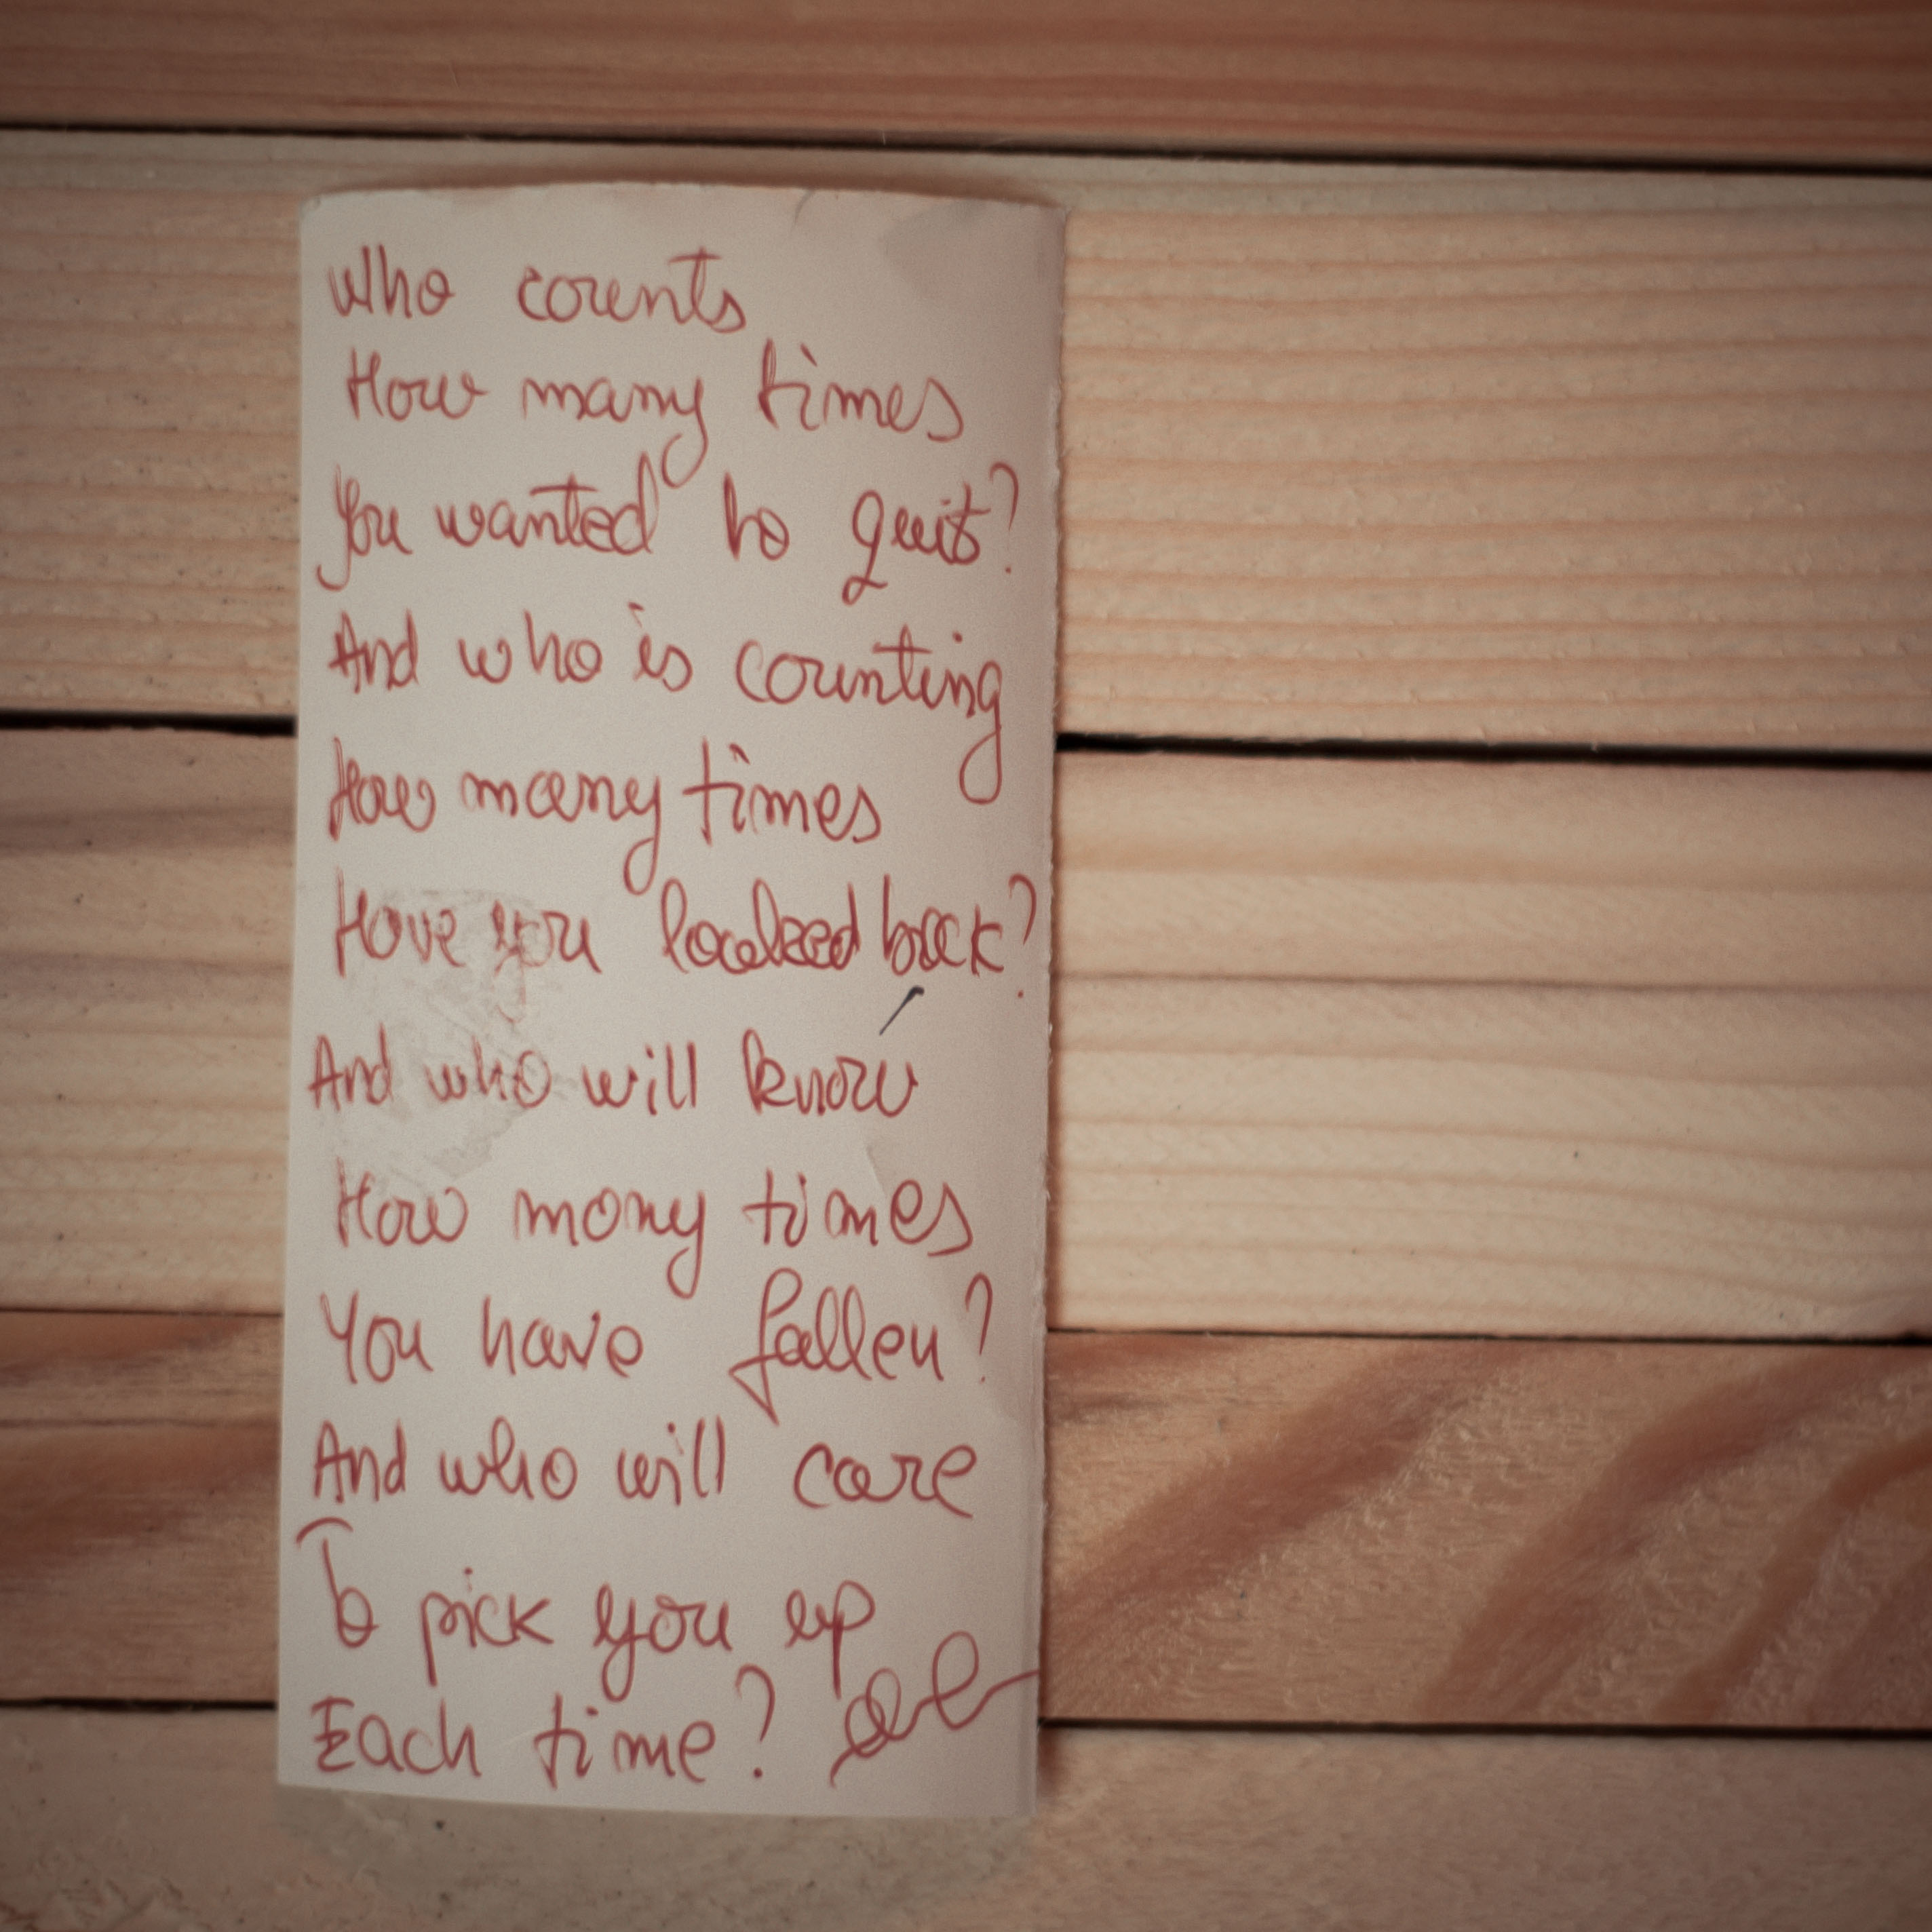 Who counts
How many times
You wanted to quit?
And who is counting
How many times
Have you looked back?
And who will know
How many times
You have fallen?
And who will care
To pick you up
Each time?